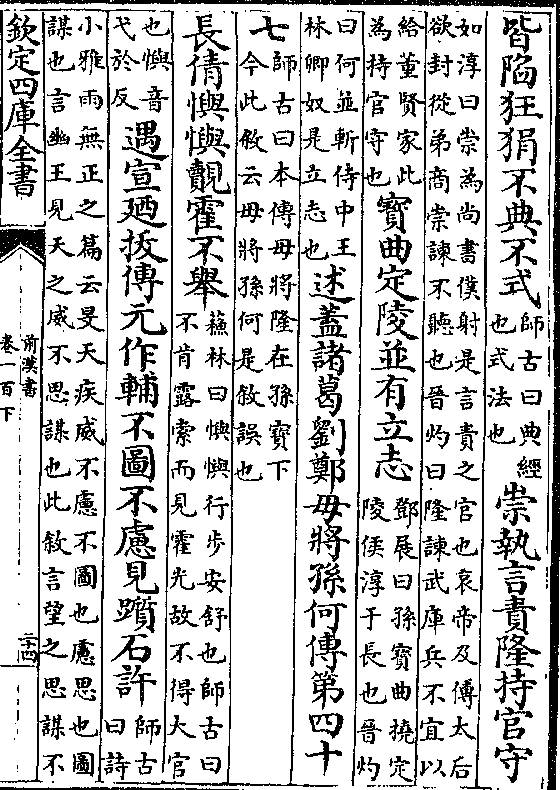 皆陷狂狷不典不式師古曰典經也式法也崇執言責隆持官守
如淳曰崇為尚書僕射是言責之官也哀帝及傅太后
欲封從弟商崇諫不聽也晉灼曰隆諫武庫兵不宜以
給董賢家此為持官守也寶曲定陵並有立志鄧展曰孫寶曲撓定陵侯淳于長也晉灼
曰何並斬侍中王林卿奴是立志也述蓋諸葛劉鄭毋將孫何傳第四十
七師古曰本傳毋將隆在孫寶下今此敘云毋將孫何是敘誤也
長倩懙懙覿霍不舉蘇林曰懙懙行步安舒也師古曰不肯露索而見霍光故不得大官
也懙音弋於反遇宣廼拔傅元作輔不圖不慮見躓石許師古曰詩
小雅雨無正之篇云旻天疾威不慮不圖也慮思也圖
謀也言幽王見天之威不思謀也此敘言望之思謀不
欽定四庫全書
前漢書
卷一百下